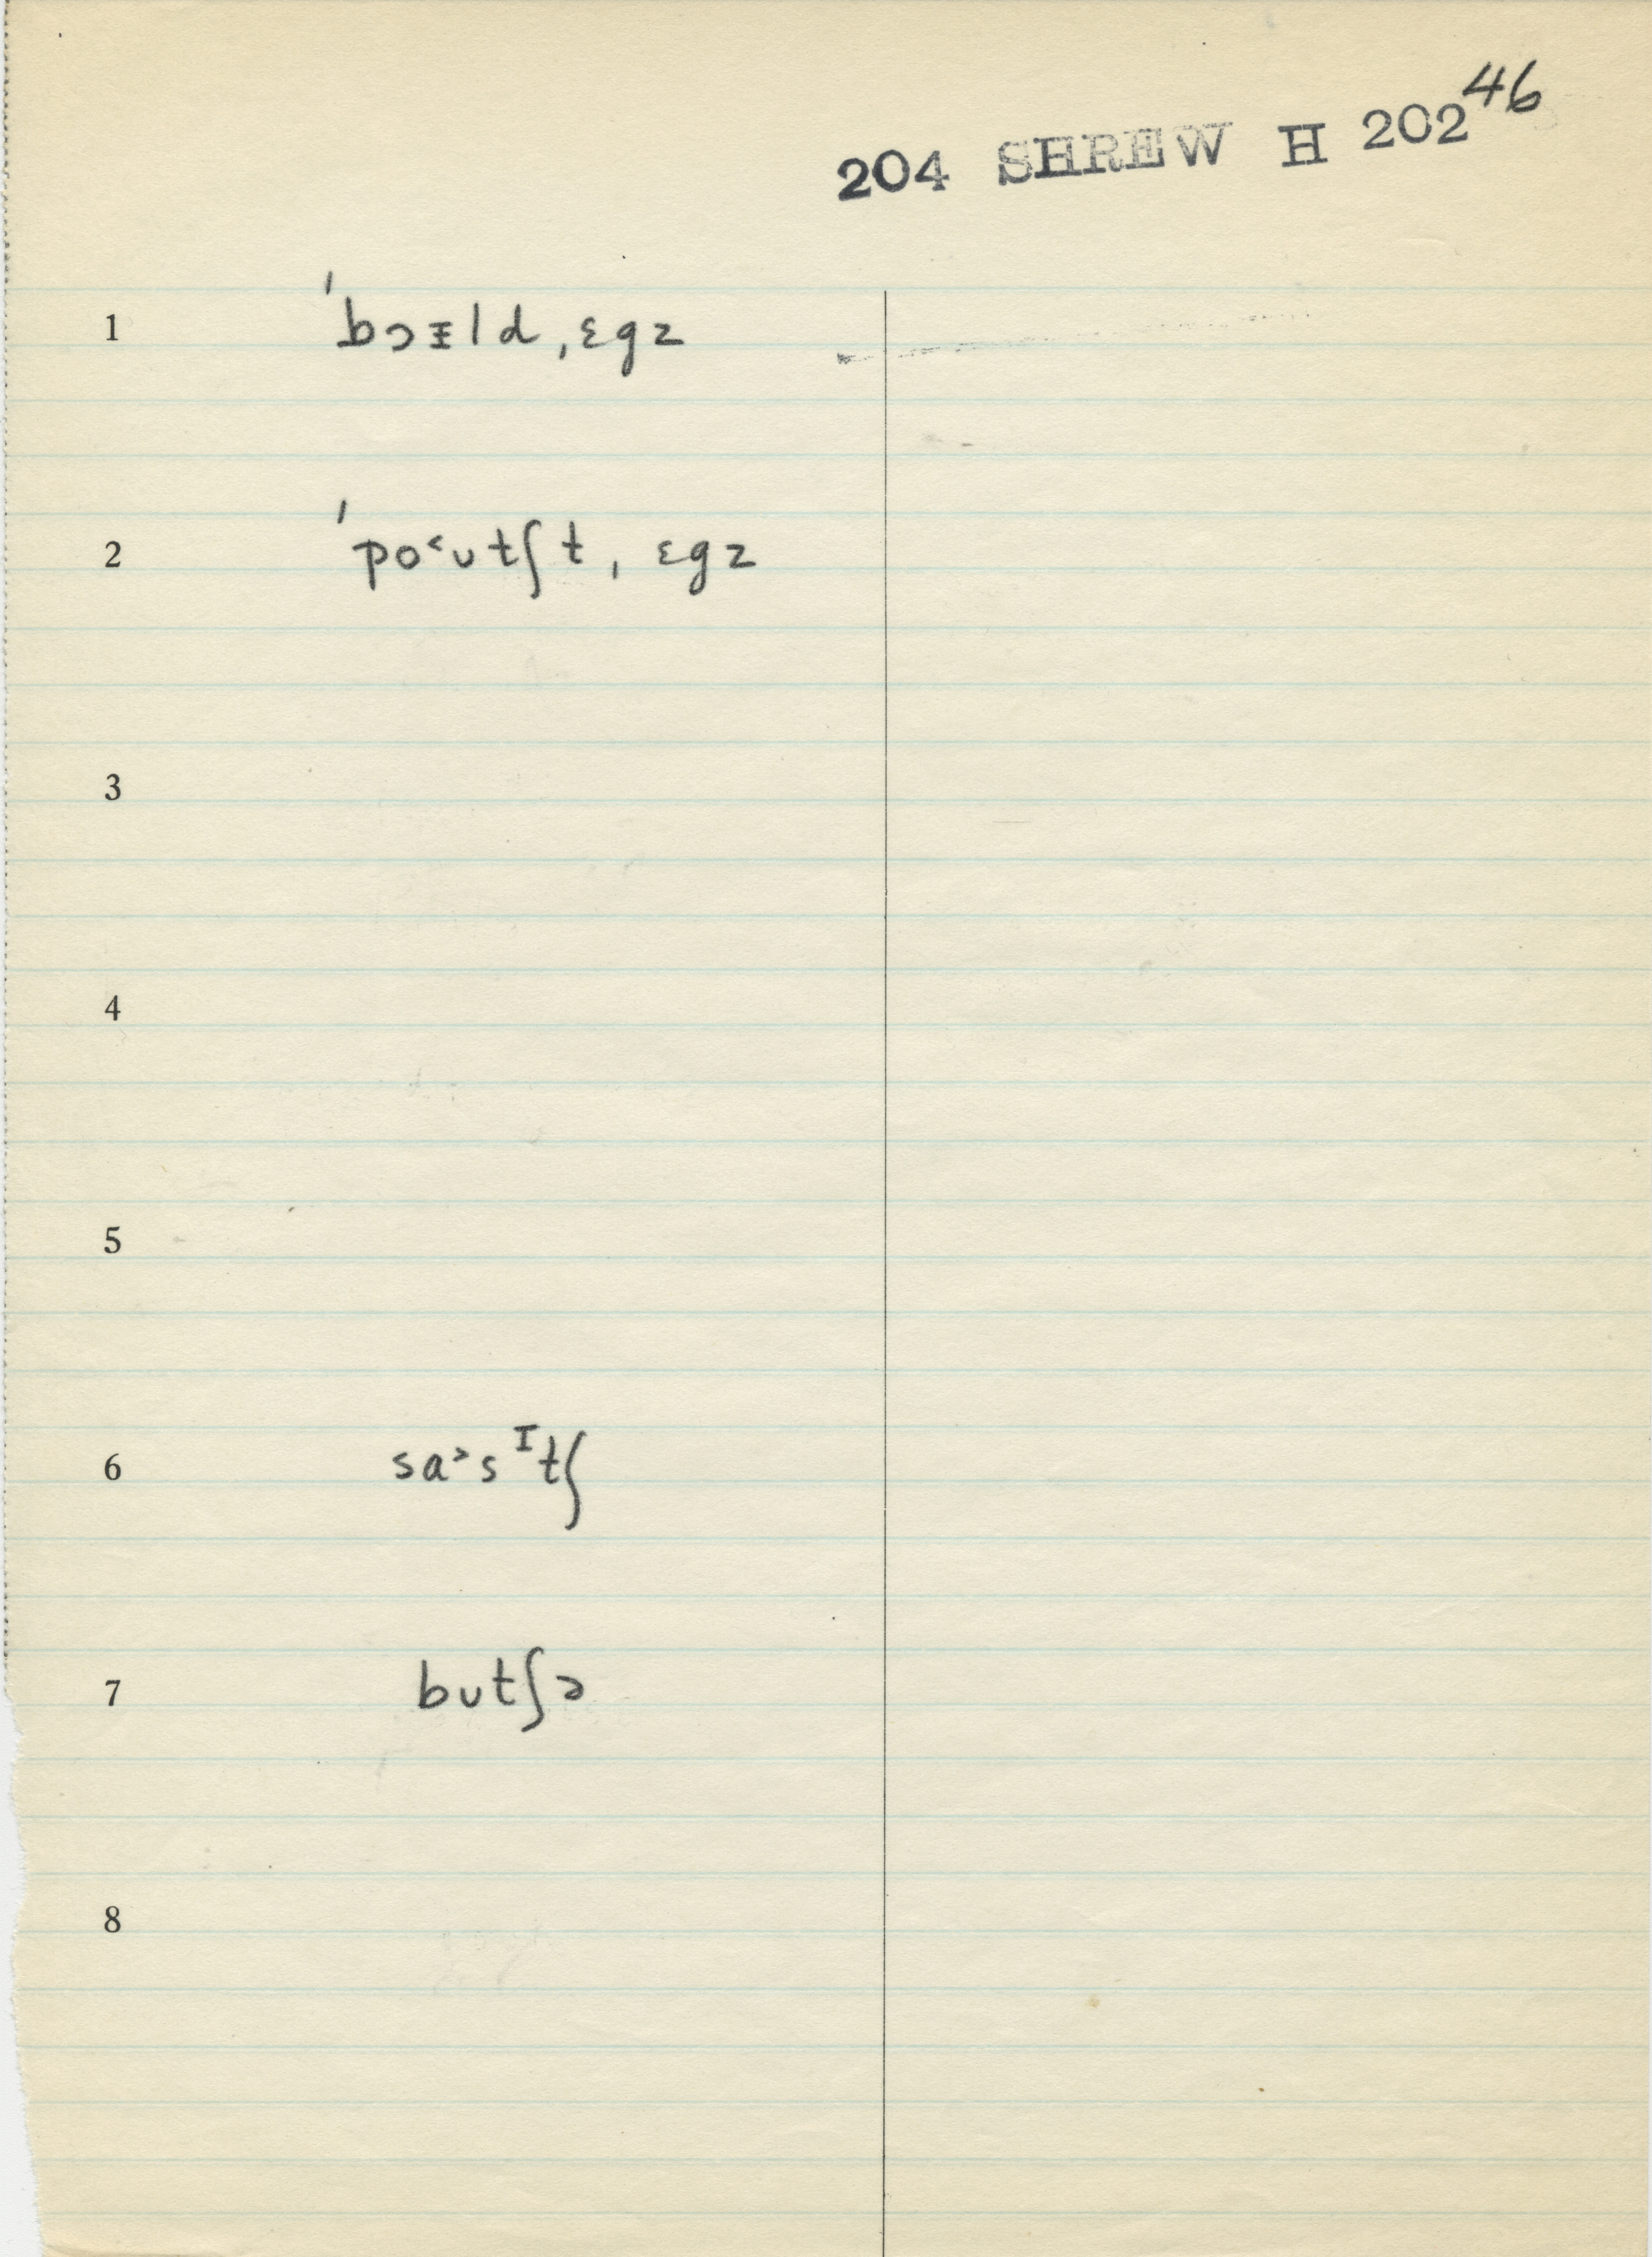 46
204 SHREW H 202
1 ˈbɔɪld ˌɛgz
2 ˈpo˂ʊtʃt ˌɛgz
3
4
5
6 sa˃sᴵtʃ
7 bʊtʃə
8